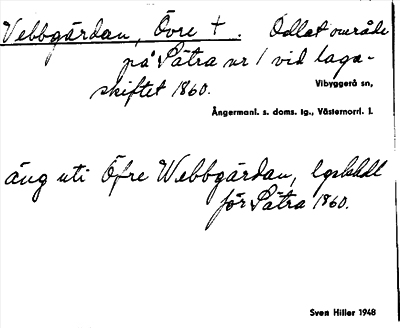 Vebbgärdan, Övre †. Odlat område
på Sätra nr 1 vid laga-
skiftet 1860.
Vibyggerå sn,
Ångermanl. s. doms. lg., Västernorrl. l.
äng uti Öfre Webbgärdan, lgshdl
för Sätra 1860.
Sven Hiller 1948